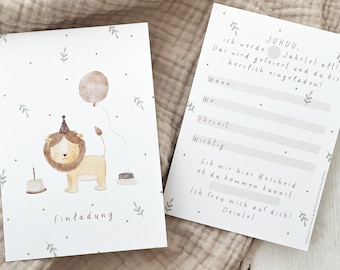 Einladung
JUHUU,
ich werde Jahr(e) alt!
Das wird gefeiert und du bist
herzlich eingeladen!
Wann:
Wo:
Uhrzeit:
Wichtig:
Gib mir hier Bescheid
ob du kommen kannst:
Ich freu mich auf dich!
Dein(e)